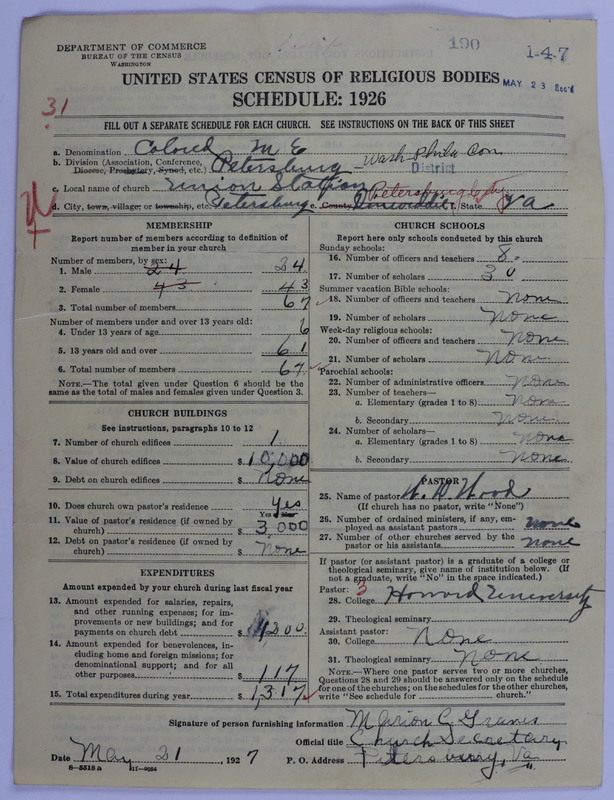 DEPARTMENT OF COMMERCE
BUREAU OF THE CENSUS
WASHINGTON
190
1-4-7
UNITED STATES CENSUS OF RELIGIOUS BODIES
MAY 23 Rec'd
SCHEDULE: 1926
31
FILL OUT A SEPARATE SCHEDULE FOR EACH CHURCH. SEE INSTRUCTIONS ON THE BACK OF THIS SHEET
a. Denomination Colored M E
b. Division (Association, Conference, Diocese, Presbytery, Synod, etc.) Petersburg - Wash-Phila Con
District
c. Local name of church Union Station
d. City, town, village, or township, etc. Petersburg e. County Petersburg City f. State Va
MEMBERSHIP
Report number of members according to definition of
member in your church
Number of members, by sex:
1. Male 24 24
2. Female 43 43
3. Total number of members 67
Number of members under and over 13 years old:
4. Under 13 years of age 6
5. 13 years old and over 61
6. Total number of members 67
NOTE.—The total given under Question 6 should be the
same as the total of males and females given under Question 3.
CHURCH BUILDINGS
See instructions, paragraphs 10 to 12
7. Number of church edifices 1
8. Value of church edifices $10,000
9. Debt on church edifices $ none
10. Does church own pastor's residence? yes
Yes or No
11. Value of pastor's residence (if owned by
church) $ 3,000
12. Debt on pastor's residence (if owned by
church) $ none
EXPENDITURES
Amount expended by your church during last fiscal year
13. Amount expended for salaries, repairs,
and other running expenses; for im-
provements or new buildings; and for
payments on church debt $ 1200
14. Amount expended for benevolences, in-
cluding home and foreign missions; for
denominational support; and for all
other purposes $ 117
15. Total expenditures during year $ 1,317
CHURCH SCHOOLS
Report here only schools conducted by this church
Sunday schools:
16. Number of officers and teachers 8
17. Number of scholars 30
Summer vacation Bible schools:
18. Number of officers and teachers None
19. Number of scholars None
Week-day religious schools:
20. Number of officers and teachers None
21. Number of scholars None
Parochial schools:
22. Number of administrative officers None
23. Number of teachers—
a. Elementary (grades 1 to 8) None
b. Secondary None
24. Number of scholars—
a. Elementary (grades 1 to 8) None
b. Secondary None
PASTOR
25. Name of pastor W. D. Wood
(If church has no pastor, write "None")
26. Number of ordained ministers, if any, em-
ployed as assistant pastors none
27. Number of other churches served by the
pastor or his assistants none
If pastor (or assistant pastor) is a graduate of a college or
theological seminary, give name of institution below. (If
not a graduate, write "No" in the space indicated.)
Pastor: 3
28. College Howard University
29. Theological seminary
Assistant pastor:
30. College None
31. Theological seminary None
NOTE.—Where one pastor serves two or more churches,
Questions 28 and 29 should be answered only on the schedule
for one of the churches; on the schedules for the other churches,
write "See schedule for church."
Signature of person furnishing information Marion C. Graves
Official title Church Secretary
Date May 21, 1927 P. O. Address Petersburg, Va
8—5518 a 11—9054